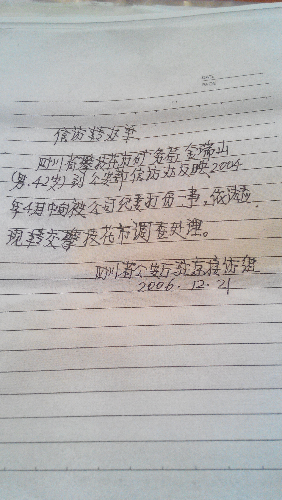 信访转办单
四川省攀枝花市矿务局金瑞山
(男,42岁)到公安部信访办反映2004
年4月中旬被公司纪委打伤一事,
现转交攀枝花市调查处理。
四川省公安厅驻京接访组
2006.12.21